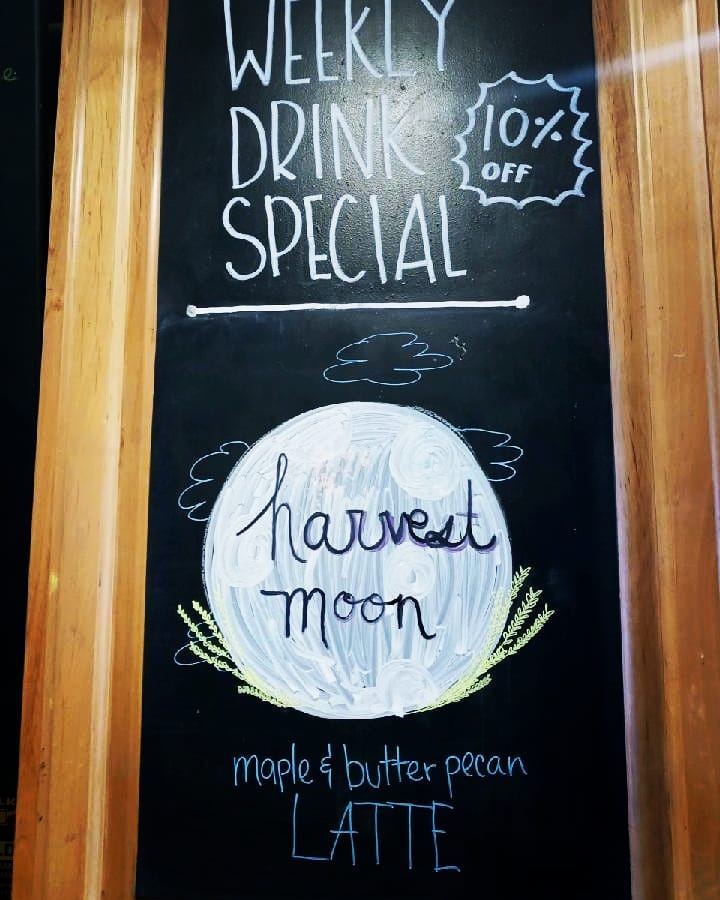 WEEKLY
DRINK
SPECIAL
10%
OFF
harvest
moon
maple & butter pecan
LATTE